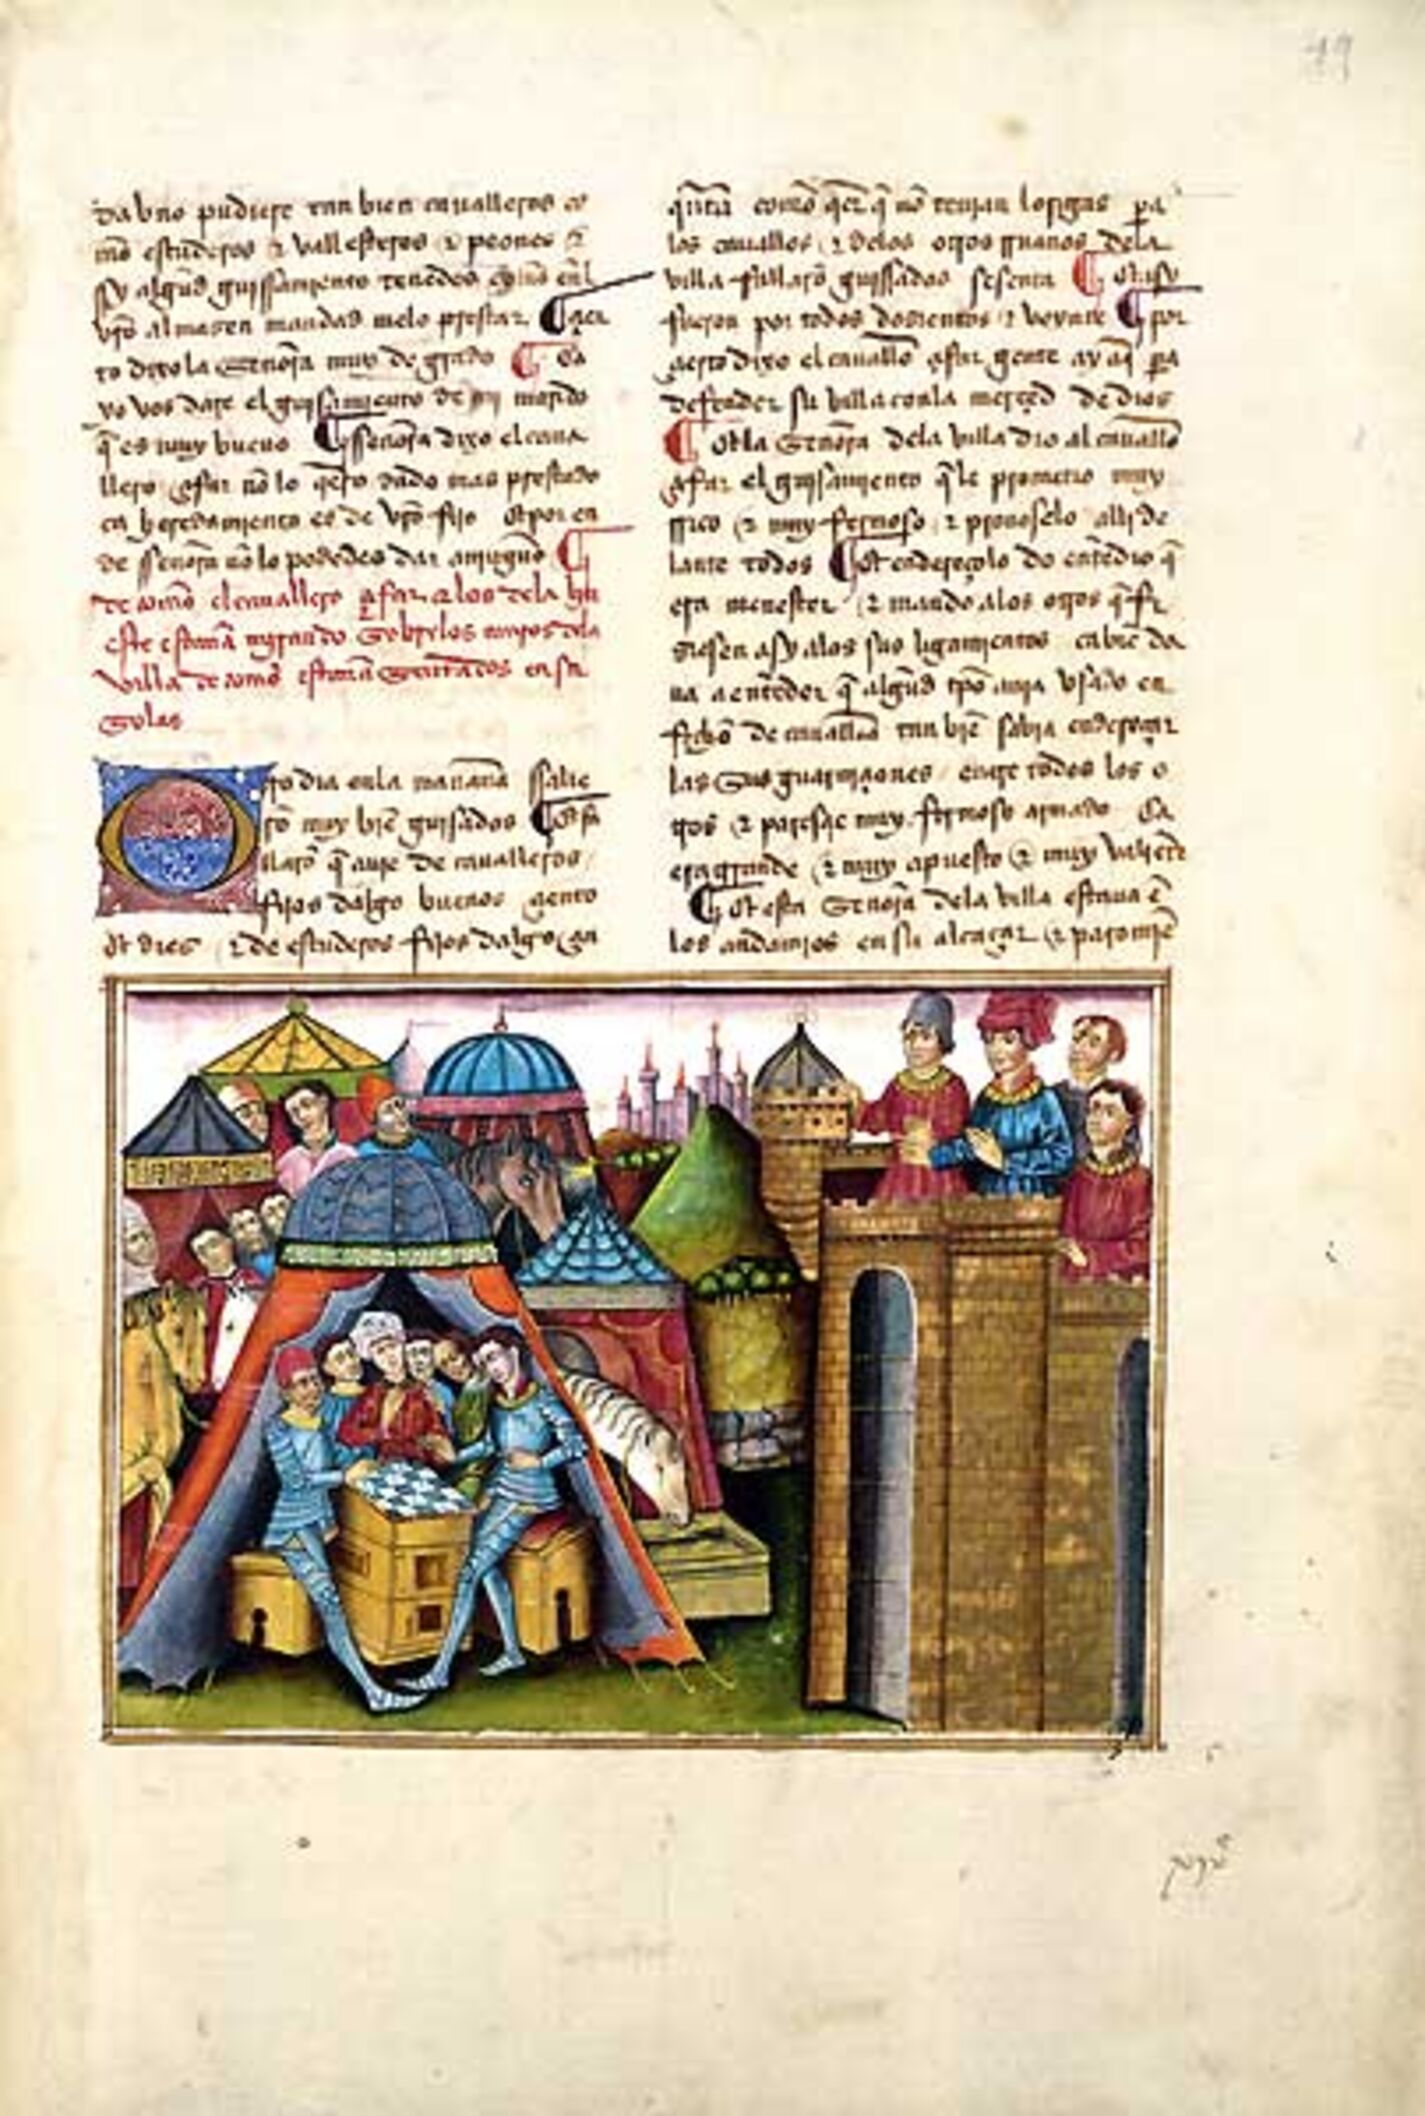 da vno pudiere tan bien caualleros co
mo escuderos & vallesteros & peones &
sy algud guissamiento tenedes
vro almasen mandad melo prestar ¶ çier
to dixo la señora muy de grado ¶ Ca
yo vos dare el guisamiento de mi marido
q̃ es muy bueno ¶ señora dixo el caua
llero çifar nõ lo q̃ero dado mas prestado
ca heredamiento es de vr̃o fijo & por en
de señora nõ lo podedes dar a ninguno ¶
de como el cauallero çifar & los de la hu
este estauã mirando sobre los muros dela
villa de como estauã sentados en su
solas
Otro dia en la mañana sallie
rõ muy biẽ guisados ¶ & fa
llarõ q̃ auie de caualleros
fijos dalgo buenos çiento
& dies & de escuderos fijos dalgo çin
q̃nta como q̃er q̃ nõ tenian pa
los cauallos & delos otros ruanos dela
villa fallarõ guissados sesenta ¶ & asy
fueron por todos dosientos & veynte ¶ por
çierto dixo el cauallo çifar gente ay aq̃ pa
defender su villa con la merçed de dios
¶ & la señora dela villa dio al cauallo
çifar el guisamiento q̃ le prometio muy
rrico & muy fermoso & prouoselo alli de
lante todos ¶ & endereçolo do entẽdio q̃
era menester & mando a los otros q̃ fi
siesen asy a los sus ligamientos ca bie da
ua a entẽder q̃ algũd tpõ auia vsado en
fecho de caualleria tan biẽ sabia endereçar
las sus guarniçones entre todos los o
tros & paresçie muy fermoso armado Ca
era grande & muy apuesto & muy valiẽte
¶ & esta señora dela villa estaua ẽ
los andamios en su alcaçar & paro miẽ